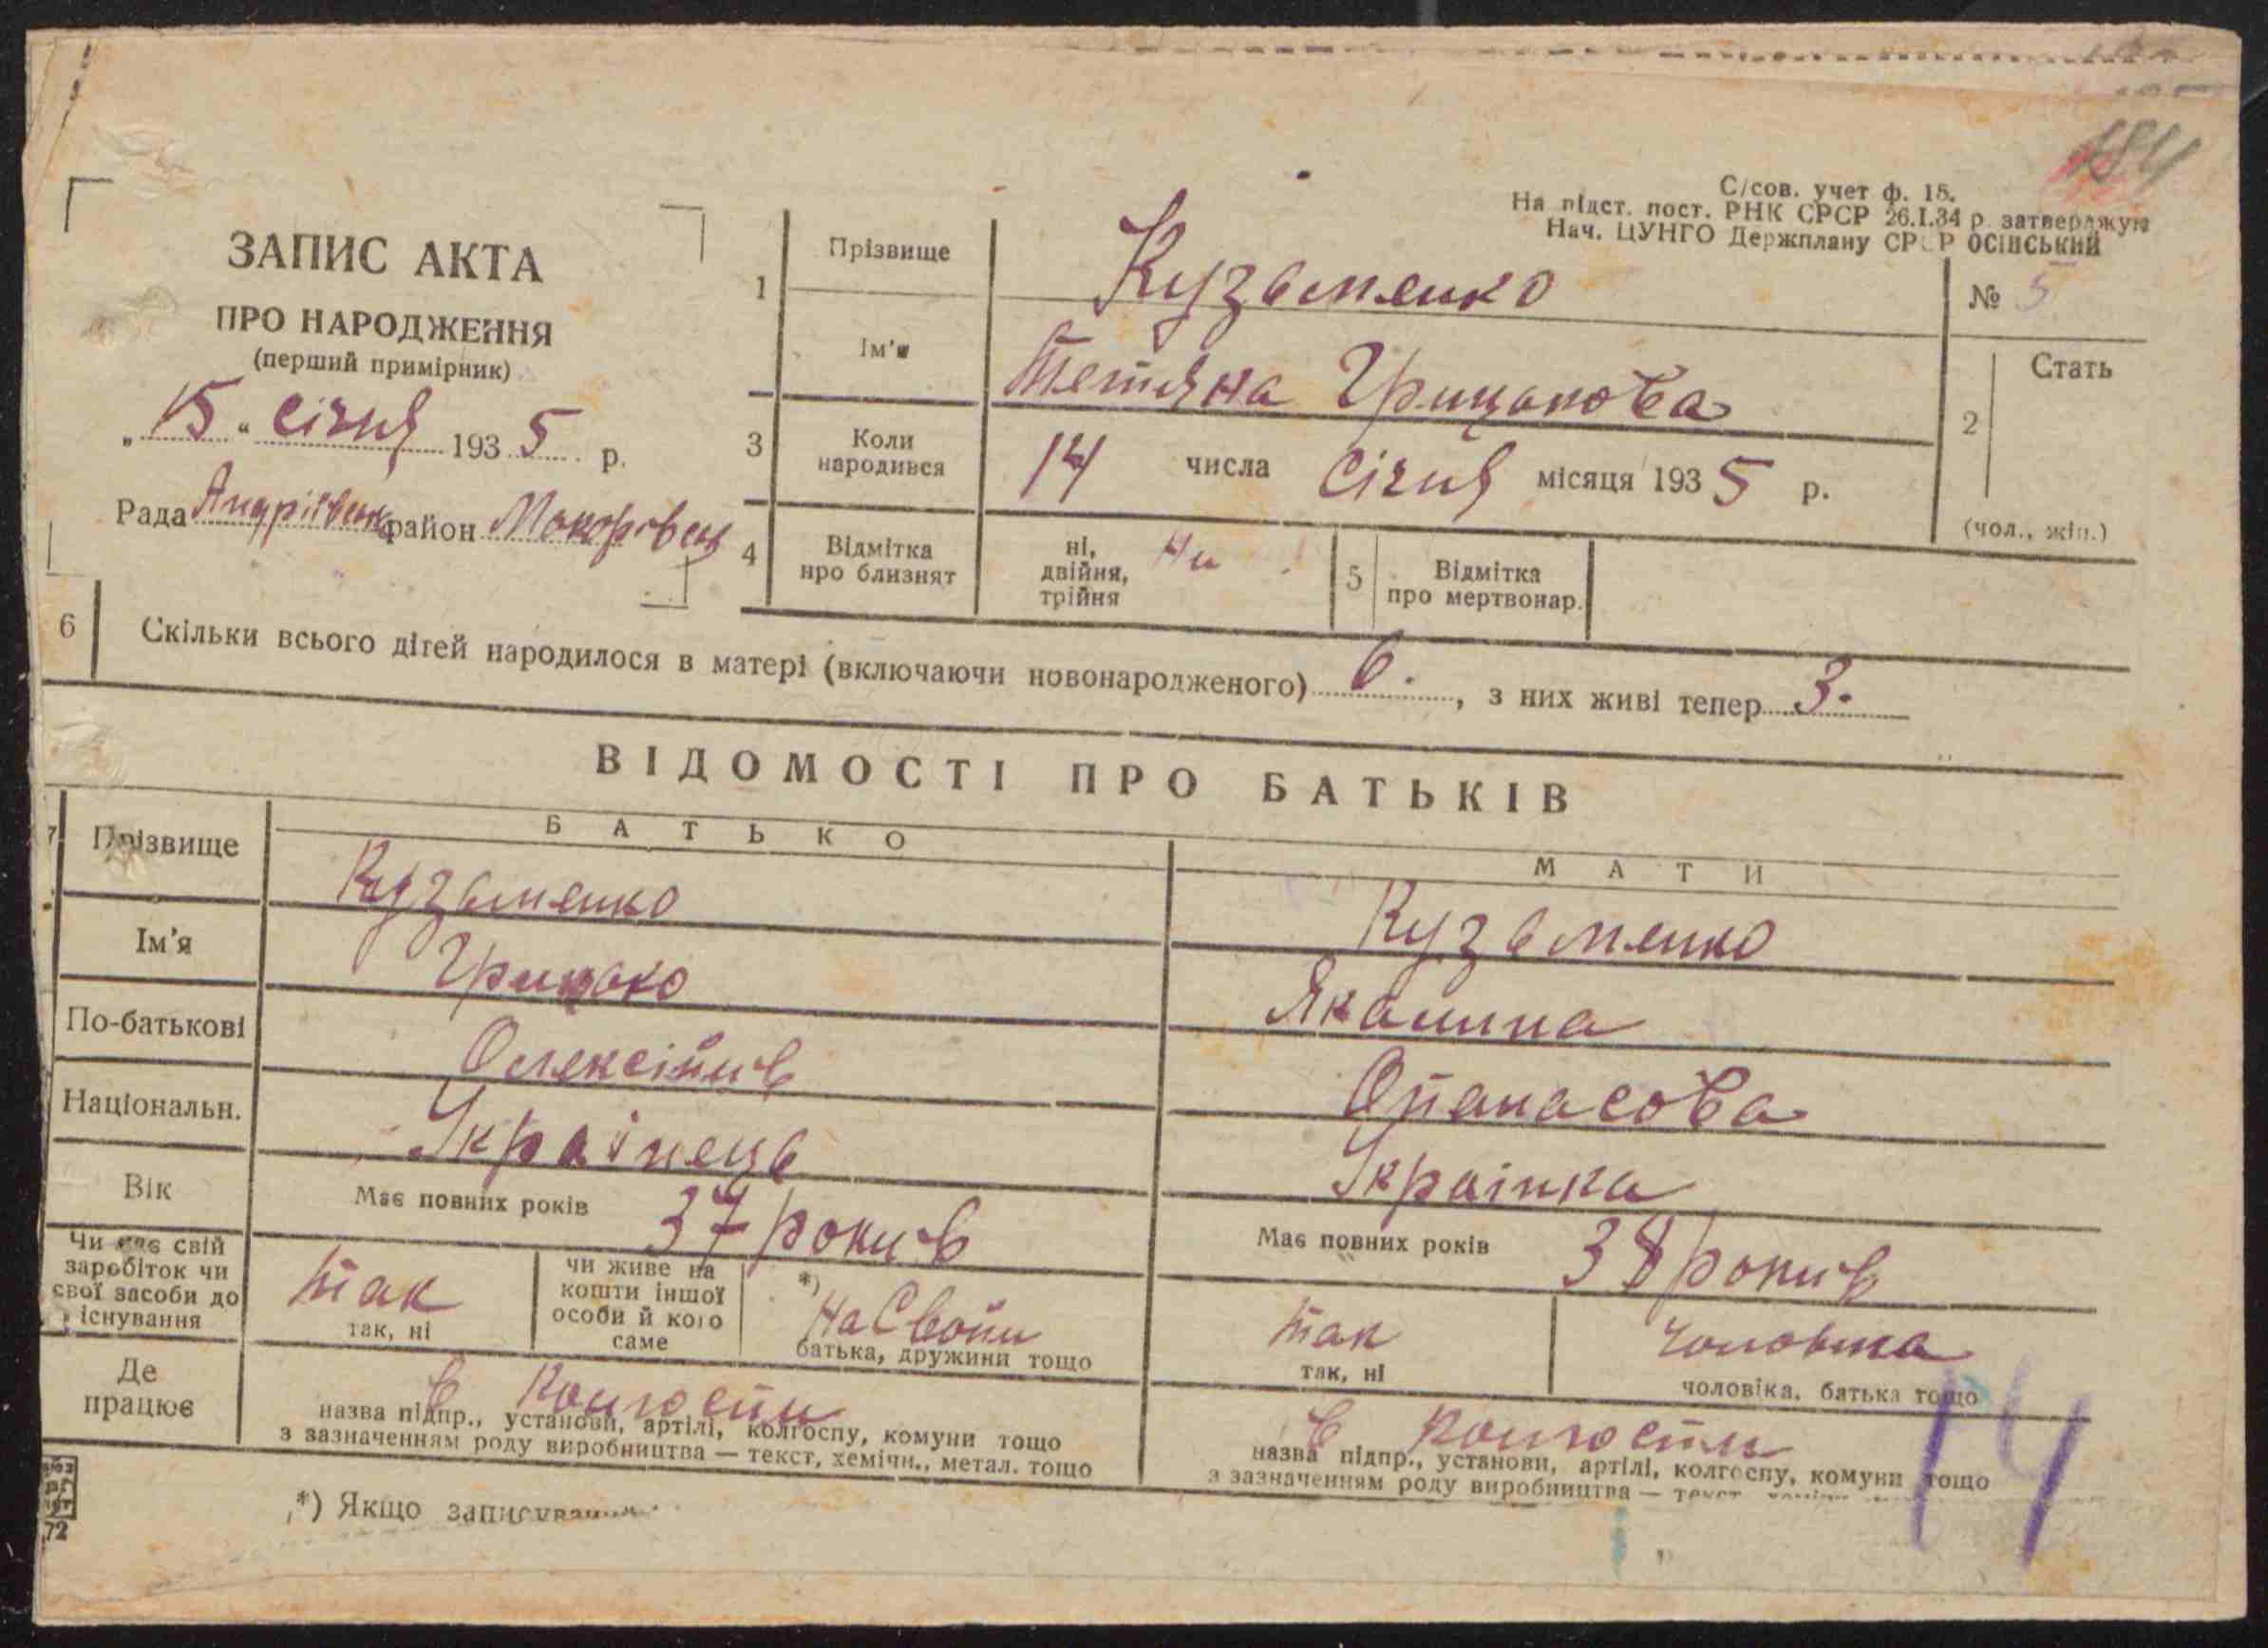 184
С/сов. учет ф. 15.
На підст. пост. РНК СРСР 26.I.34 р. затверджую
Нач. ЦУНГО Держплану СРСР ОСІНСЬКИЙ
ЗАПИС АКТА
ПРО НАРОДЖЕННЯ
(перший примірник)
„ 15 “ Січня 1935 р.
Рада Андріївськ район Макорівськ
1 Прізвище Кузьменко
№ 5
Ім'я Тетяна Грицькова
2 Стать
(чол., жін.)
3 Коли народився 14 числа Січня місяця 1935 р.
4 Відмітка про близнят ні, двійня, трійня Ни
5 Відмітка про мертвонар.
6 Скільки всього дітей народилося в матері (включаючи новонародженого) 6. , з них живі тепер 3.
ВІДОМОСТІ ПРО БАТЬКІВ
БАТЬКО
МАТИ
7 Прізвище Кузьменко Кузьменко
Ім'я Грицько
По-батькові Олексійив Опанасова
Національн. Украінець Украінка
Вік Має повних років 37 рокив Має повних років 38 рокив
Чи має свій заробіток чи свої засоби до існування
так
так, ні
чи живе на кошти іншої особи й кого саме
*) На Свойи
батька, дружини тощо
так
так, ні
Чоловика
чоловіка, батька тощо
Де працює
в Колгоспи
назва підпр., установи, артілі, колгоспу, комуни тощо
з зазначенням роду виробництва — текст, хемічн., метал. тощо
в Колгоспи
назва підпр., установи, артілі, колгоспу, комуни тощо
з зазначенням роду виробництва — текст
*) Якщо
72
14